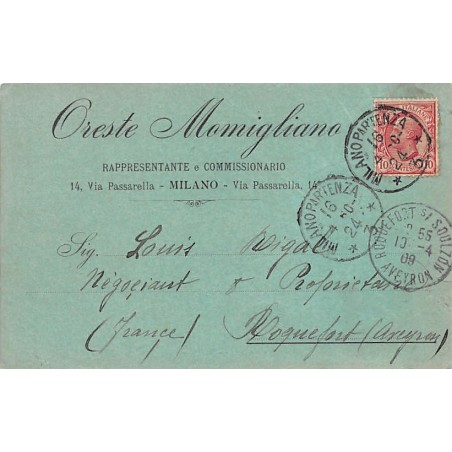 Oreste Momigliano
RAPPRESENTANTE e COMMISSIONARIO
14, Via Passarella - MILANO - Via Passarella, 14
MILANO PARTENZA
MILANO PARTENZA
ROQUEFORT S/ SOULZON
AVEYRON
Sig. Louis Rigal
Négociant & Propriétaire
(France) Roquefort (Aveyron)